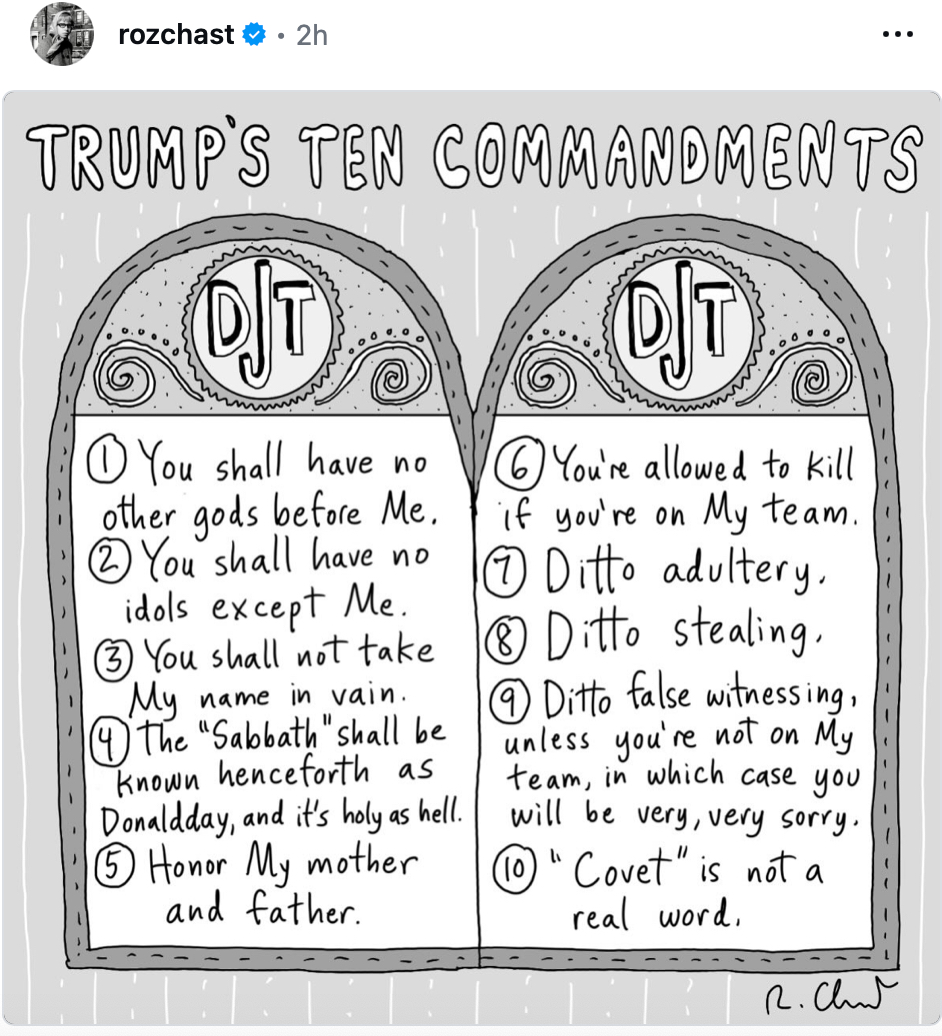 rozchast • 2h
TRUMP'S TEN COMMANDMENTS
DJT
① You shall have no
other gods before Me.
② You shall have no
idols except Me.
③ You shall not take
My name in vain.
④ The "Sabbath" shall be
known henceforth as
Donaldday, and it's holy as hell.
⑤ Honor My mother
and father.
DJT
⑥ You're allowed to kill
if you're on My team.
⑦ Ditto adultery.
⑧ Ditto stealing.
⑨ Ditto false witnessing,
unless you're not on My
team, in which case you
will be very, very sorry.
⑩ "Covet" is not a
real word.
R. Chast